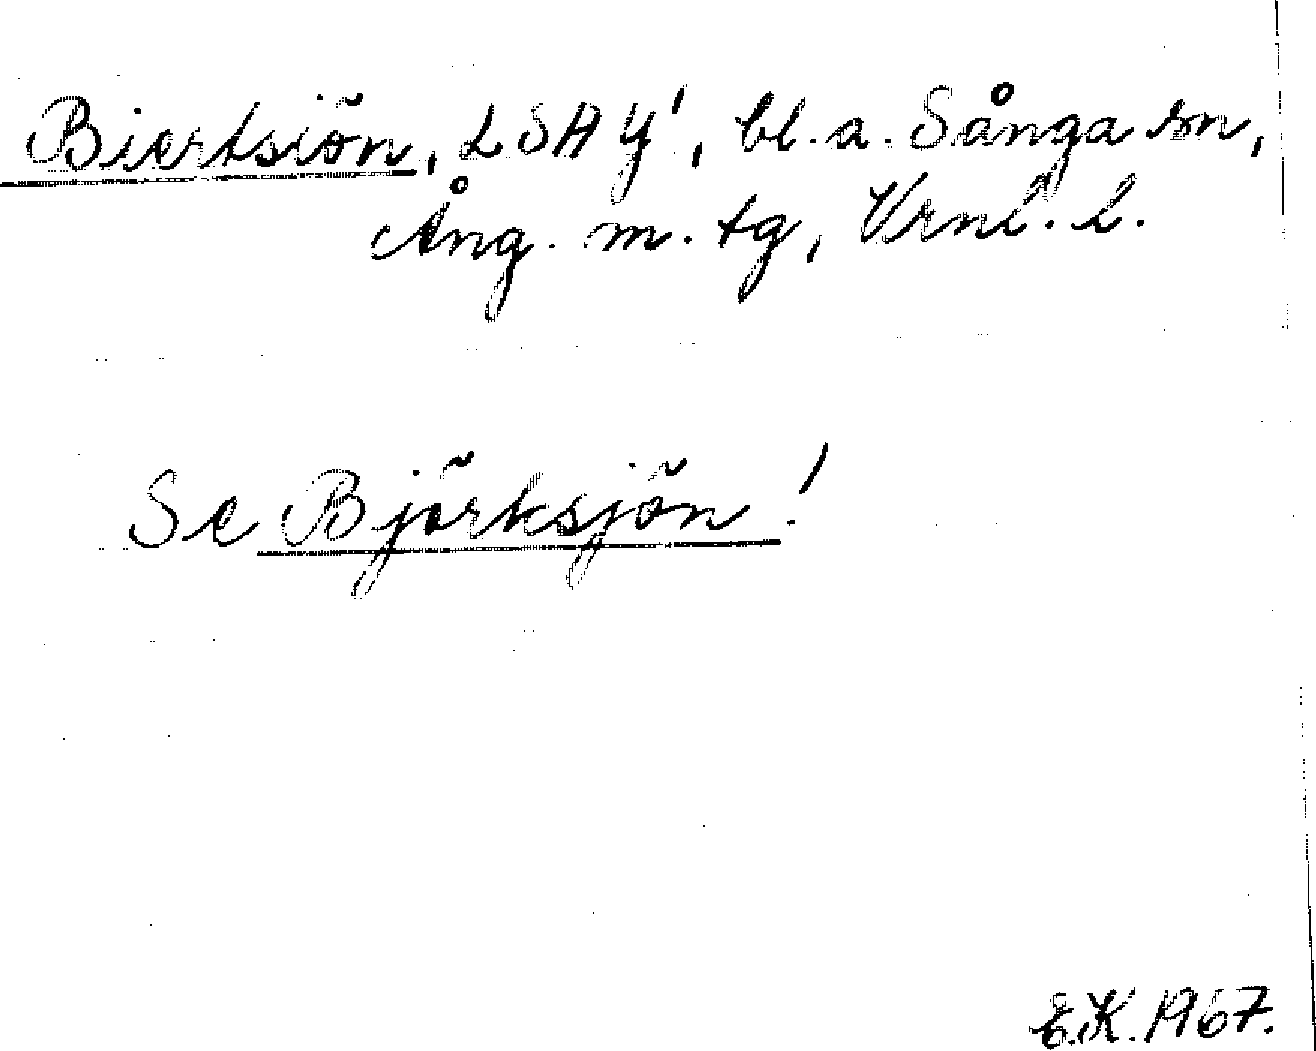 Biertsiön, LSA Y', bl. a. Sånga sn,
Ång. m. tg, Vrnl. l.
Se Björksjön!
E.K. 1967.